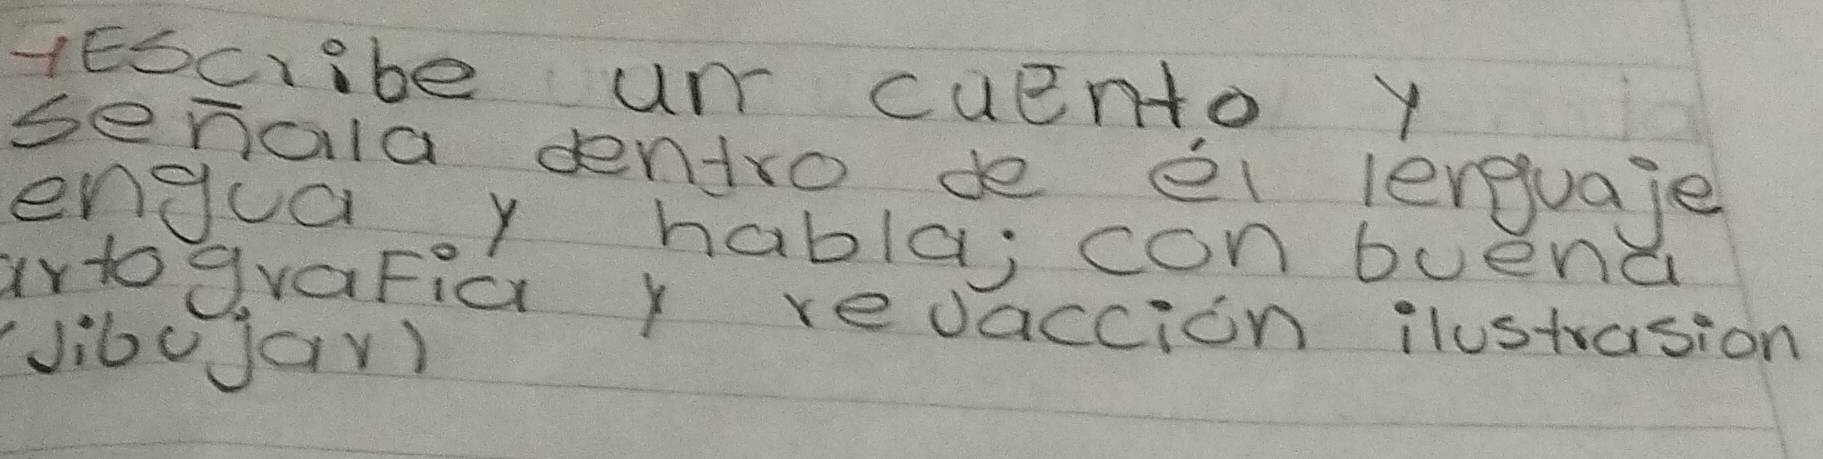 -Escribe un cuento y
señala dentro de él lenguaje
engua y habla; con buena
artografia y redacción ilustrasion
(dibujar)